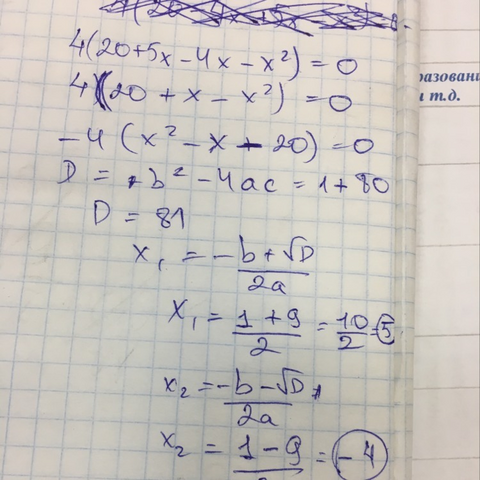 4(20+5x-4x-x²)=0
4(20+x-x²)=0
-4(x²-x-20)=0
D=b²-4ac=1+80
D=81
x₁=-b+√D/2a
x₁=1+9/2=10/2=5
x₂=-b-√D/2a
x₂=1-9/2=-4
и т.д.